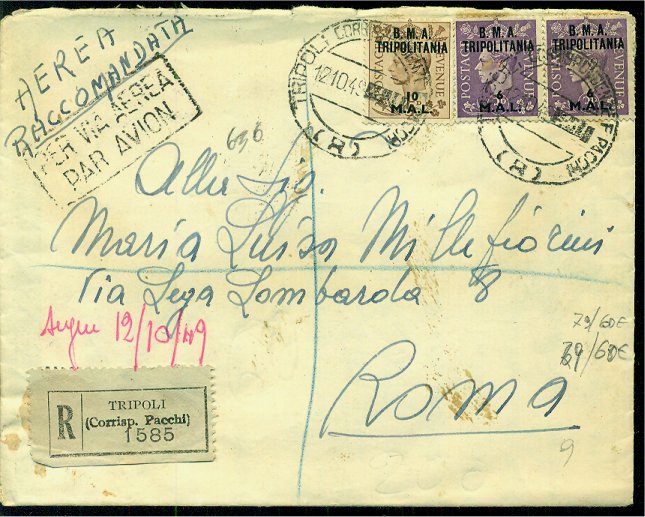 AEREA
RACCOMANDATA
PER VIA AEREA
PAR AVION
TRIPOLI CORRISP
12 10 49
(8)
B. M. A.
TRIPOLITANIA
POSTAGE REVENUE
10
M.A.L.
B. M. A.
TRIPOLITANIA
POSTAGE REVENUE
6
M.A.L.
B. M. A.
TRIPOLITANIA
POSTAGE REVENUE
6
M.A.L.
PACCHI
(8)
636
Alla Sig.
Maria Luisa Millefiorini
Via Lega Lombarda 8
12/10/49
79/60E
79/60E
Roma
R
TRIPOLI
(Corrisp. Pacchi)
1585
9